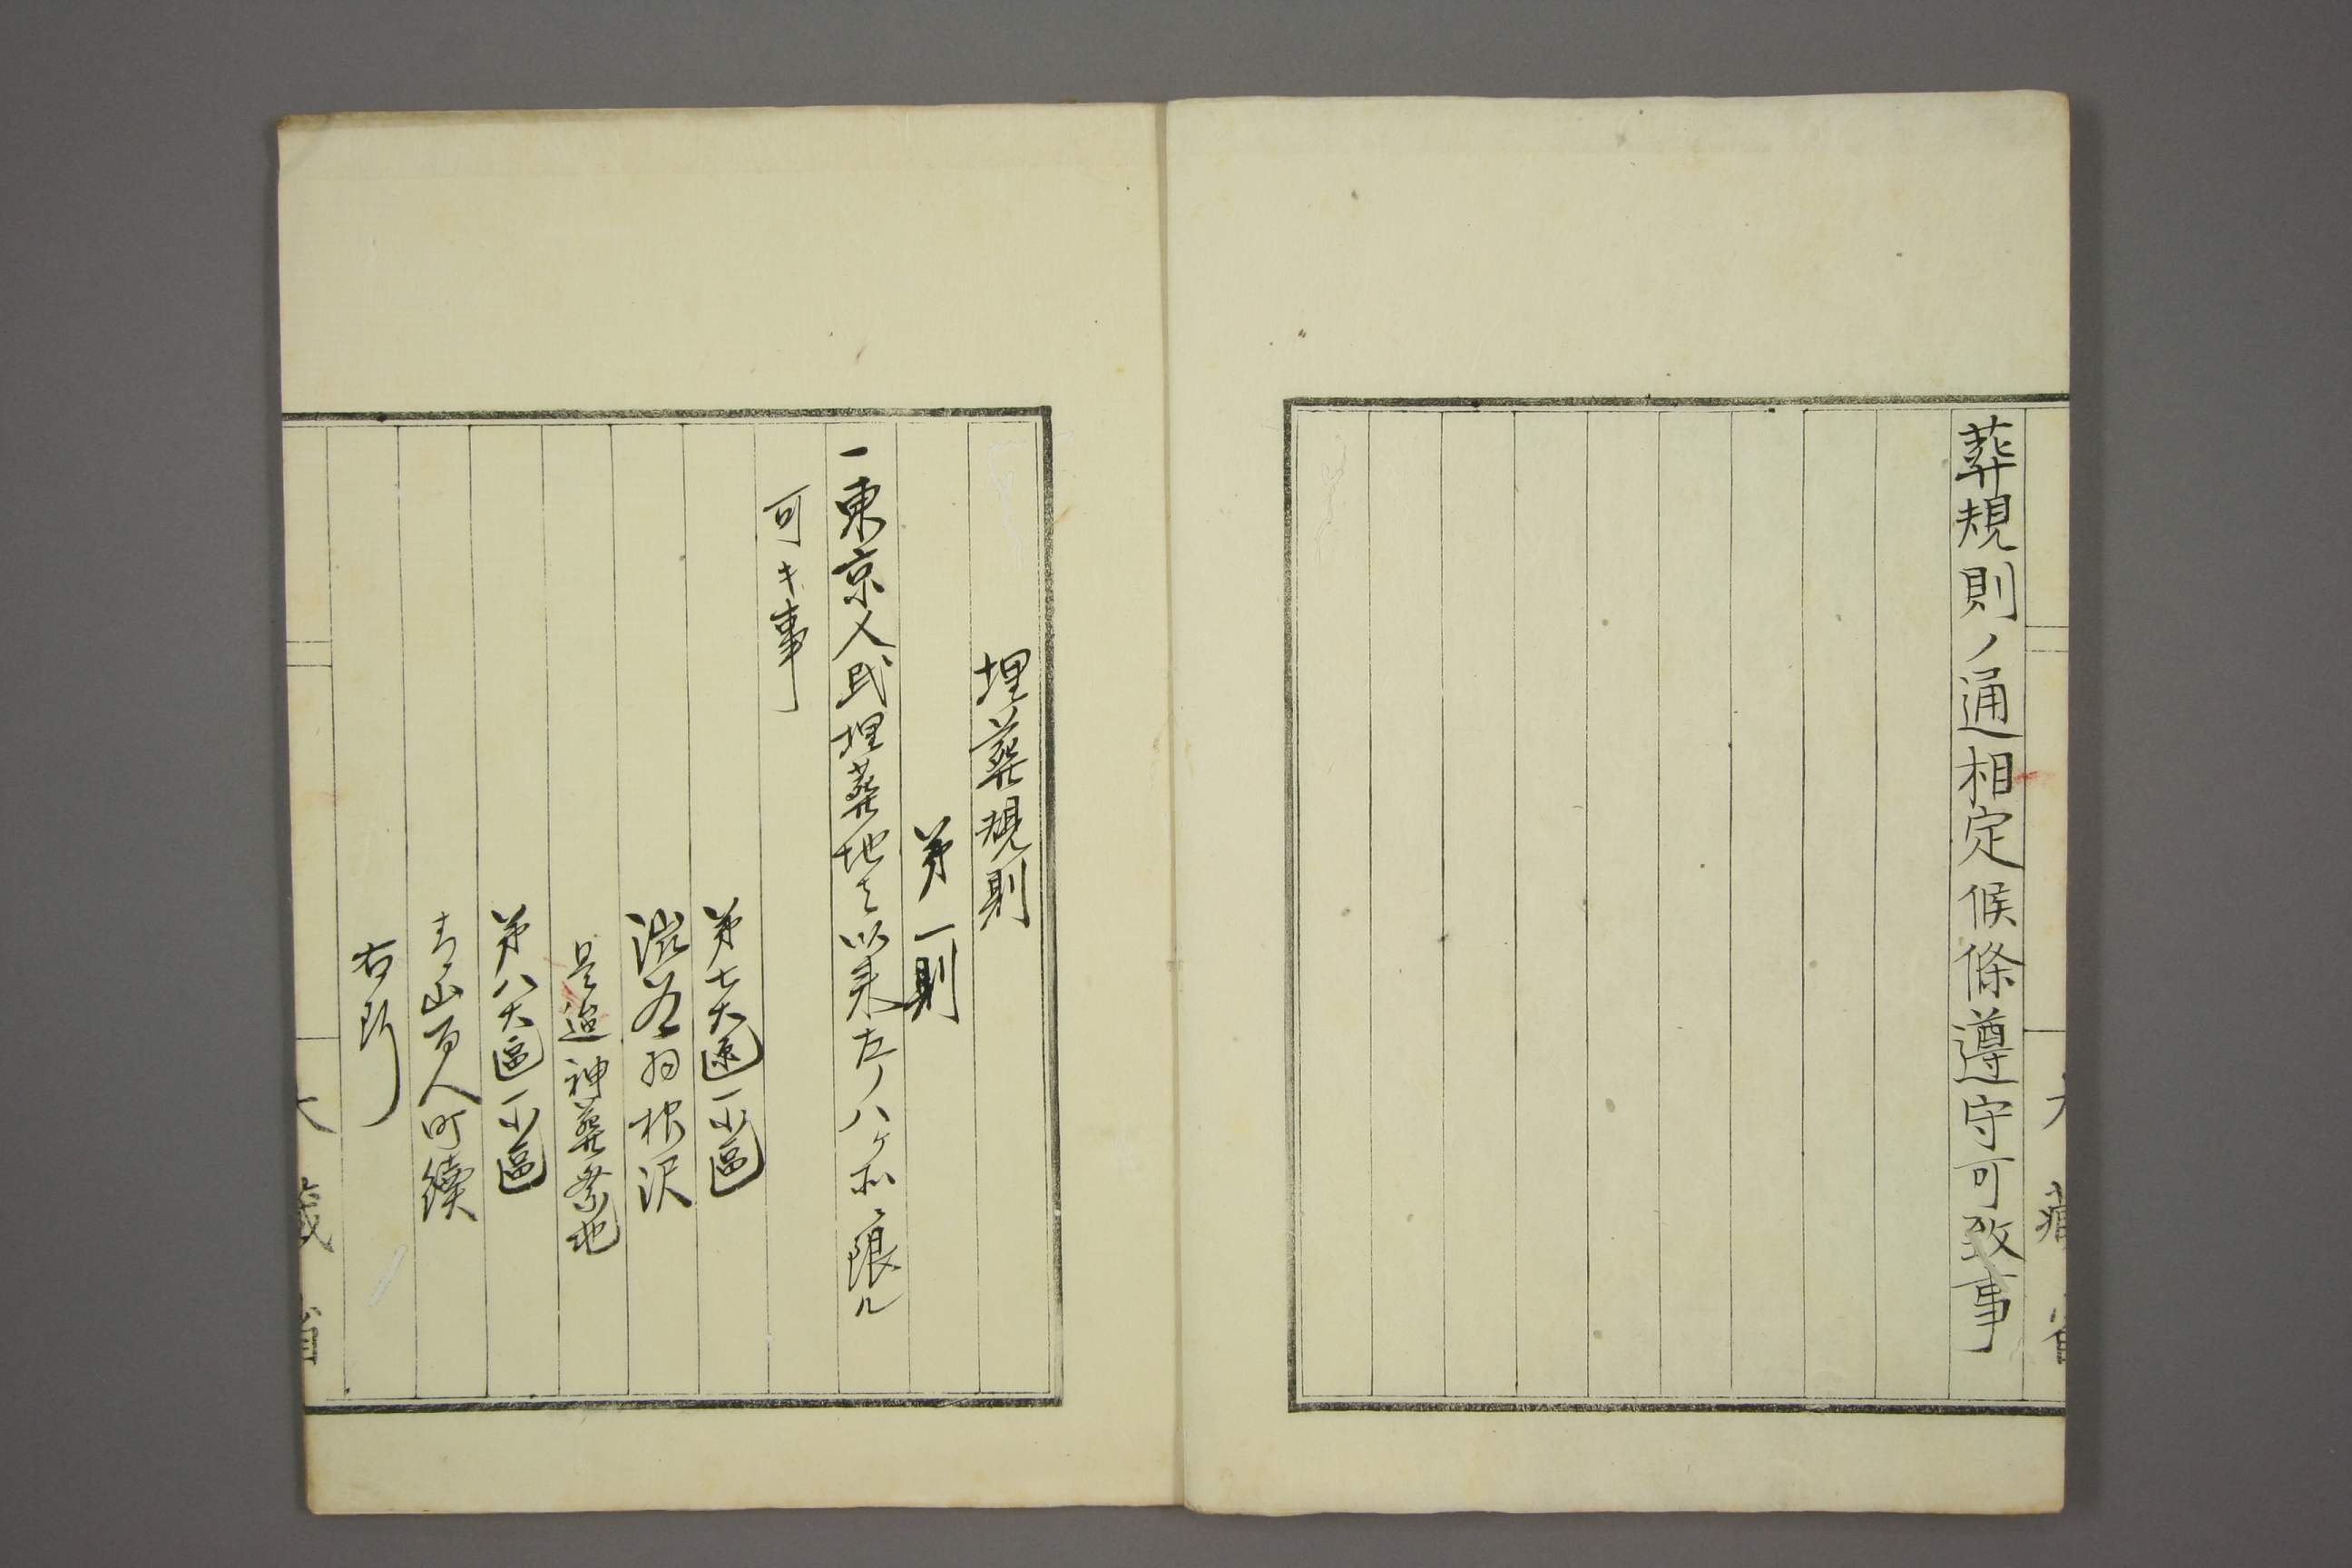 葬規則ノ通相定候條遵守可致事
埋葬規則
第一則
一東京人民埋葬地之以来左ノ八ヶ所ニ限ル
可キ事
第七大區一小區
渋谷羽根沢
是迠神葬祭地
第八大區一小區
青山百人町續
右同断
大藏省